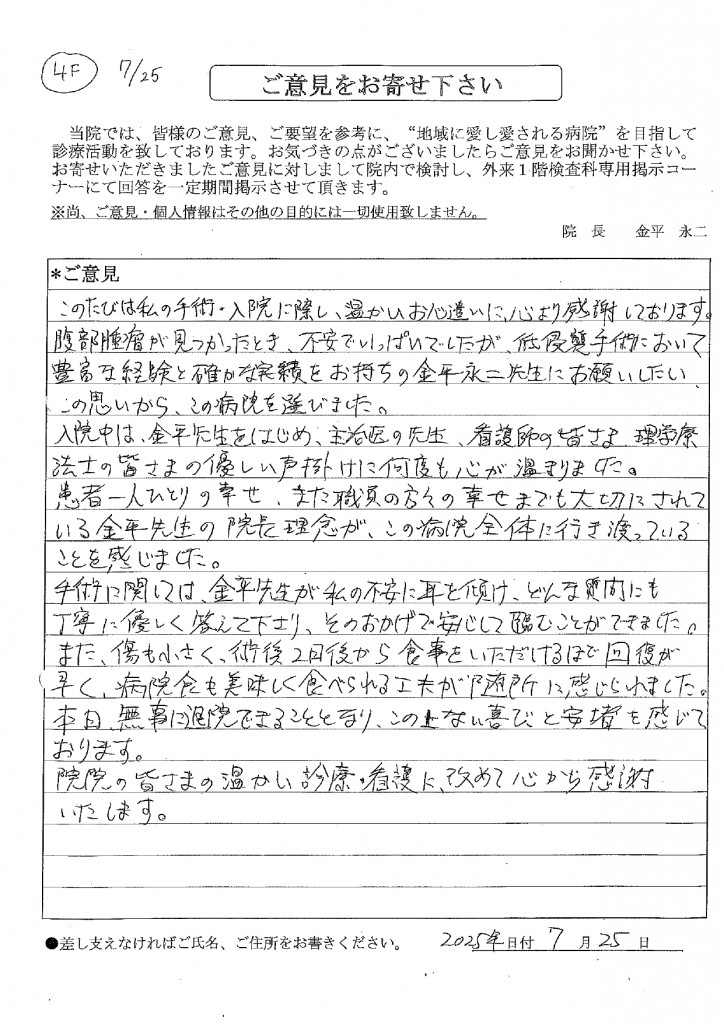 4F 7/25
ご意見をお寄せ下さい
当院では、皆様のご意見、ご要望を参考に、“地域に愛し愛される病院”を目指して
診療活動を致しております。お気づきの点がございましたらご意見をお聞かせ下さい。
お寄せいただきましたご意見に対しまして院内で検討し、外来１階検査科専用掲示コー
ナーにて回答を一定期間掲示させて頂きます。
※尚、ご意見・個人情報はその他の目的には一切使用致しません。
院 長 金平 永二
*ご意見
このたびは私の手術・入院に際し、温かいお心遣いに、心より感謝しております。
腹部腫瘤が見つかったとき、不安でいっぱいでしたが、低侵襲手術において
豊富な経験と確かな実績をお持ちの金平永二先生にお願いしたい
この思いから、この病院を選びました。
入院中は、金平先生をはじめ、主治医の先生、看護師の皆さま、理学療
法士の皆さまの優しい声掛けに何度も心が温まりました。
患者一人ひとりの幸せ、また職員の方々の幸せまでも大切にされて
いる金平先生の院長理念が、この病院全体に行き渡っている
ことを感じました。
手術に関しては、金平先生が私の不安に耳を傾け、どんな質問にも
丁寧に優しく答えて下さり、そのおかげで安心して臨むことができました。
また、傷も小さく、術後2日後から食事をいただけるほど回復が
早く、病院食も美味しく食べられる工夫が随所に感じられました。
本日、無事に退院できることとなり、この上ない喜びと安堵を感じて
おります。
院院の皆さまの温かい診療・看護に、改めて心から感謝
いたします。
●差し支えなければご氏名、ご住所をお書きください。 2025年日付 7月25日